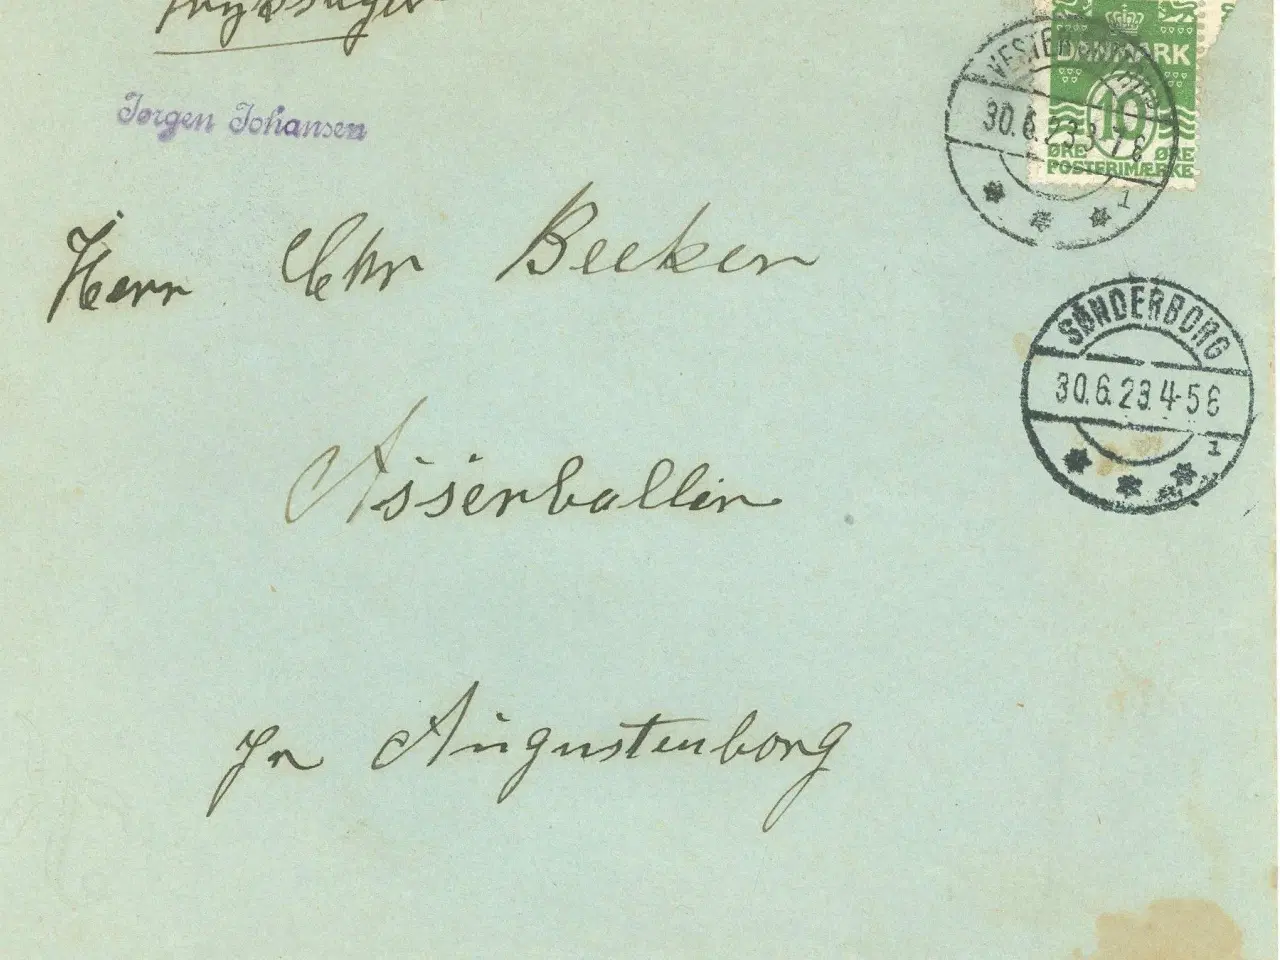 Tryksager
Jørgen Johansen
DANMARK
10
ØRE ØRE
POSTFRIMÆRKE
30.6.23.3 7 E
1
Herr Chr Becker
SØNDERBORG
30.6.23.4-5 E
1
Asserballe
pr Augustenborg